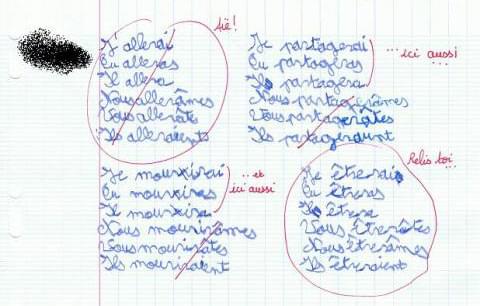 aïe!
J'allerai
Tu alleras
Il allera
Nous allerâmes
Vous allerâtes
Ils alleraient
Je partagerai
Tu partageras
Il partagera
Nous partagerâmes
Vous partagerâtes
Ils partageraient
...ici aussi...
Je mourrirai
Tu mourriras
Il mourrira
Nous mourirâmes
Vous mourirâtes
Ils mouriraient
...et
ici aussi
Relis toi...
Je êtrerai
Tu êtreras
Il êtrera
Vous êtrerâtes
Nous êtrerâmes
Ils êtreraient